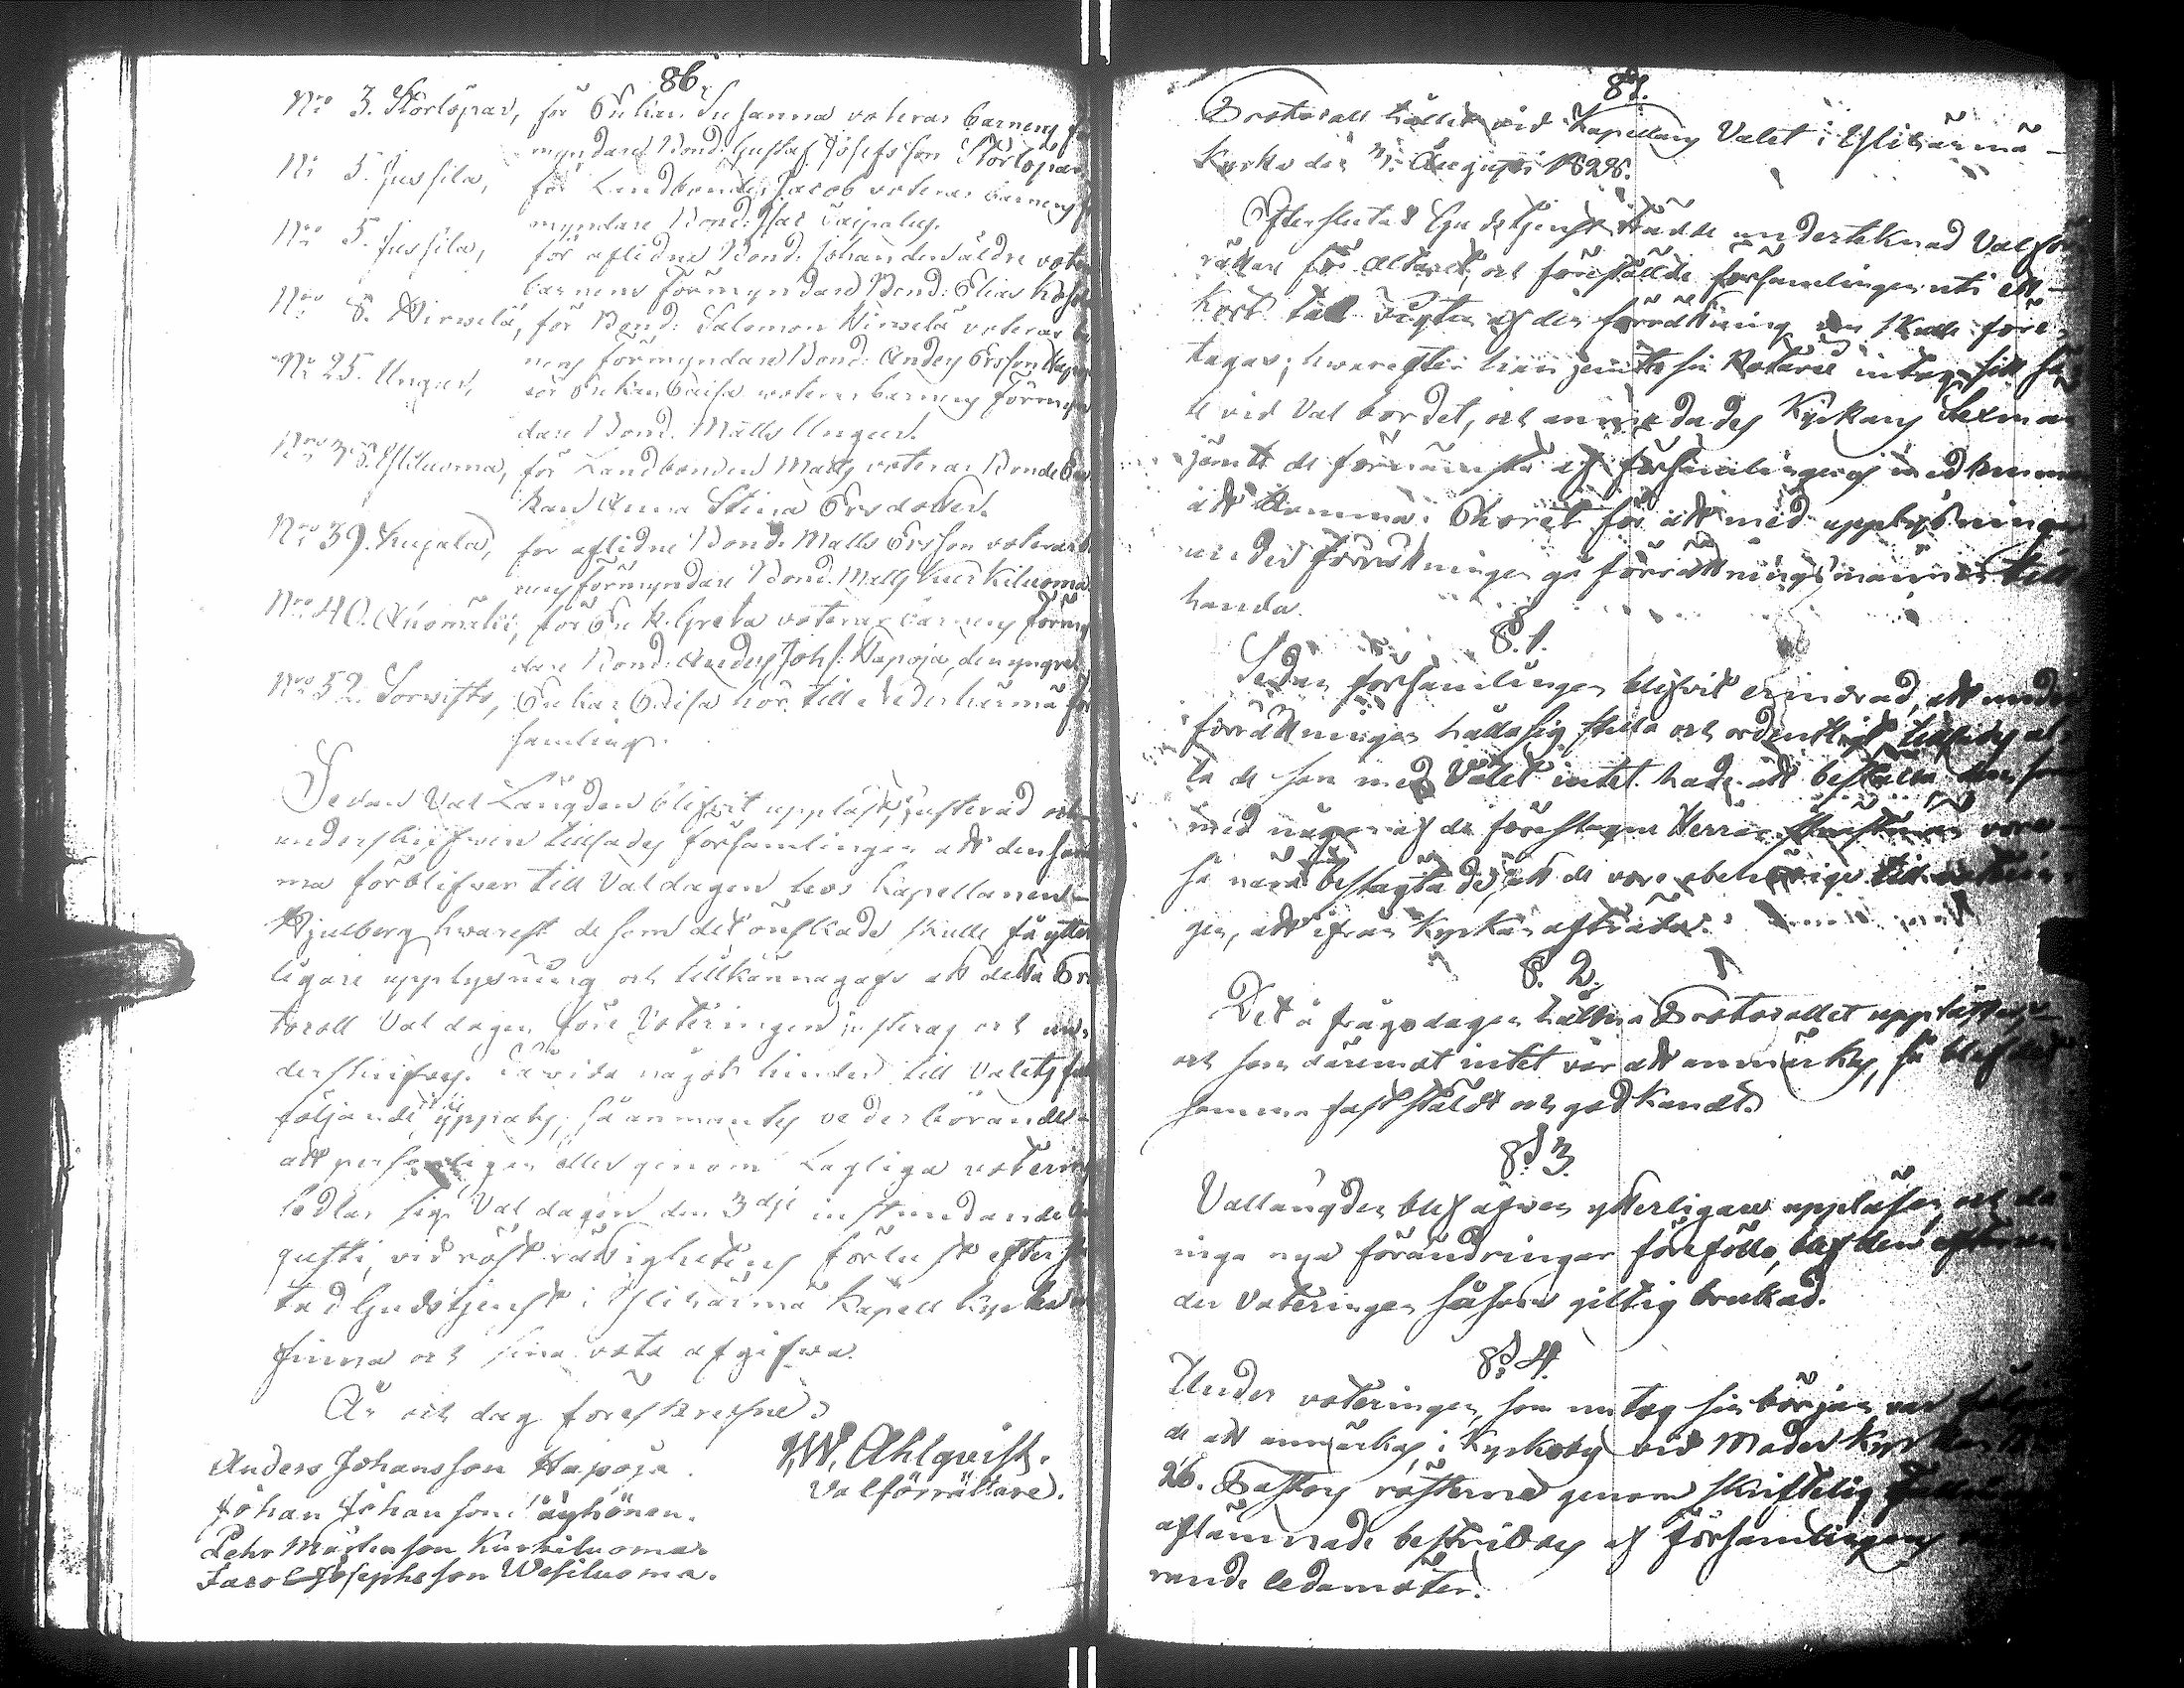 86.
Nro 3. Störlöpar, för Enkan Susanna voterar barnens för
myndare Bond: Gustaf Josefsson Störlöpar
No 5. Jussila, för Landbonden Jacob voterar barnens
myndare Bond: Isac Taipalus.
Nro 5. Jussila, för aflidne Bond: Johan den äldre voter
barnens Förmyndare Bond: Elias
Nro 8. Wirwelä, för Bond: Salomon Wirwelä voterar
nens förmyndare Bond: Anders Ersson
No 25. Ungeer, för Enkan Caisa voterar barnens Förmyn
dare Bond. Matts Ungeer.
Nro 35. Ylikuoma, för Landbonden Matts voterar Bonde En
kan Anna Stina Ersdotter.
Nro 39. Kujala, för aflidne Bond: Matts Ersson voterar
nens förmyndare Bond. Matts Kurkiluoma
Nro 40. för Enk. Greta voterar barnens Förmyn
dare Bond: Anders Johs: Hapoja, den yngre
Nro 52. Sorwisto, Enkan Caisa hör till Nederhärmä för
samling.
Sedan Val Längden blifvit uppläst, justerad och
underskrifven tillsades församlingen att densam
ma förblifver till Valdagen hos Kapellanen
Hjulberg hwarest de som det önskade skulle få ytter
ligare upplysning och tillkännagafs att detta Pro
tocoll Valdagen före Voteringen justeras och un
derskrifves. såvida något hinder till Valets
följande uppsats, så anmantes vederbörande
att personligen eller genom Lagliga voterings
sedlar sig Valdagen den 3dje instundande Au
gusti, vid rösträttighetens förlust efter slu
tad Gudstjenst i Ylihärmä Kapell Kyrka
finna och sina vota afgifva.
År och dag föreskrefne.
J.W. Ahlqvist.
Valförrättare.
Anders Johansson Hapoja.
Johan Johansson Täyhönen.
Pehr Mårtensson Kurkiluoma.
Jacob Josephsson Wesiluoma.
87.
Protocoll hållet vid Kapellans Valet i Ylihärmä
Kyrka den 3. Augusti 1828.
Efter slutad Gudstjenst trädde undertecknad Valför
rättare för Altaret, och föreställde församlingen uti ett
kort tal vigten af den förrättning som skulle före
tagas; hwarefter han jemte sin Notarie intog sitt sä
te vid Valbordet, och anmodades Kyrkans Sexman
jämte de förnämsta af församlingens medlemmar
att komma i Choret för att med upplysningar
under förrättningen gå förrättningsmannen till
handa.
§. 1.
Sedan församlingen blifvit erindrad, att under
förrättningen hålla sig stilla och ordentligt, tillsades al
la de som med Valet intet hade att beställa, eller som
med någon af de föreslagne Herrar voro
så nära beslägtade, att de voro obehörige till voterin
gen, att ifrån Kyrkan afträda.
§. 2.
Det å frågodagen hållna Protocollet upplästes
och som däremot intet var att anmärka, så blef det
samma faststäldt och godkändt.
§. 3.
Vallängden blef äfven ytterligare uppläsen, och då
inga nya förändringar föreföllo, blef den
der Voteringen såsom giltig brukad.
§. 4.
Under voteringen, som nu tog sin början var följan
de att anmärka, i Kyrkoby vid Moder Kyrkan
26. Pastors rösterna genom skriftelig
aflämnade bestridas af församlingens
rande ledamöter.